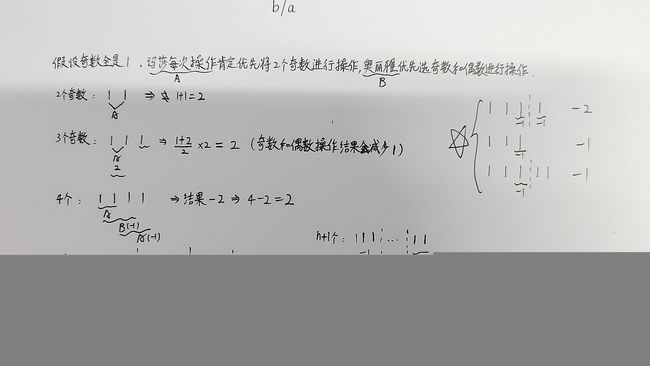 b/a
假设奇数全是1，玛莎每次操作肯定优先将2个奇数进行操作，奥丽雅优先选奇数和偶数进行操作.
A B
2个奇数： 1 1 ⇒ 1+1=2
A
3个奇数： 1 1 1 ⇒ (1+2)/2 ×2 = 2 (奇数和偶数操作结果会减少1)
A
2
4个： 1 1 1 1 ⇒ 结果-2 ⇒ 4-2=2
A
B(-1)
A(-1)
1 1 1 1 -2
-1 -1
1 1 1 -1
-1
1 1 1 1 1 -1
-1
n+1个： 1 1 1 ... 1 1
-1